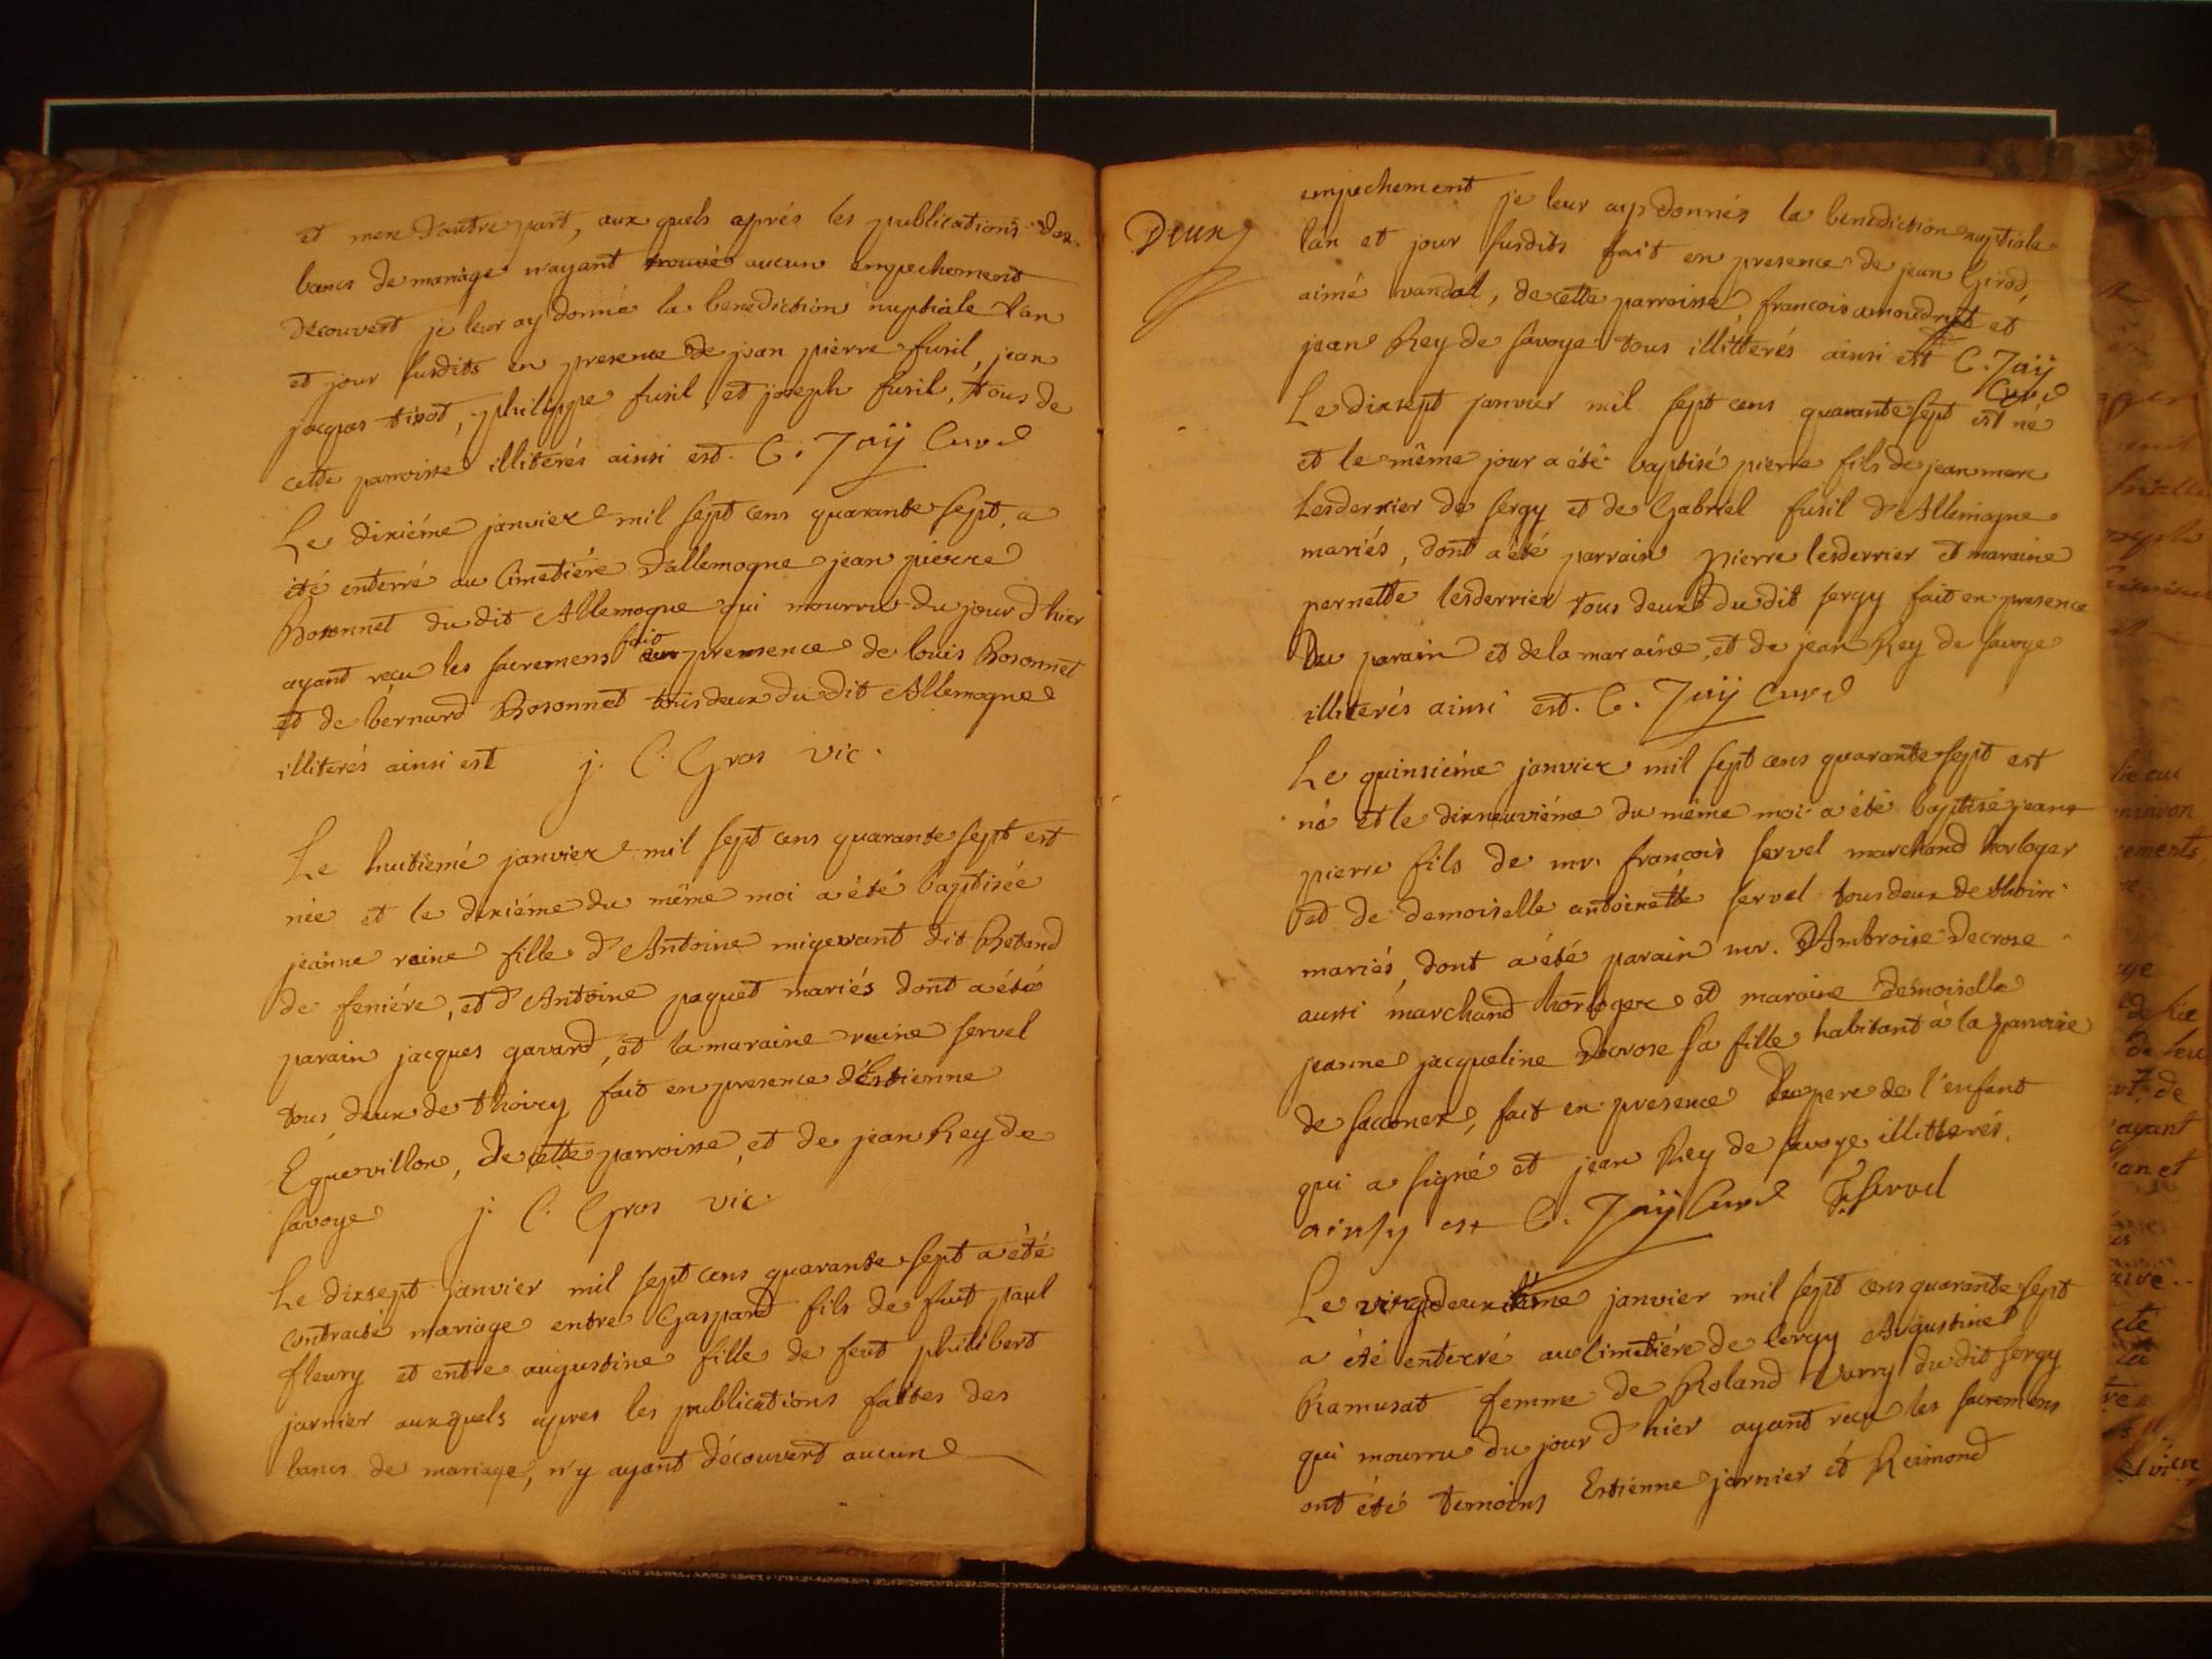 et mere d'autre part, aux quels aprés les publications des
bancs de mariage n'ayant trouvé aucun empechement
découvert je leur ay donné la benediction nuptiale l'an
et jour susdits en presence de jean pierre fusil, jean
jacques tirot, philippe fusil et joseph fusil, tous de
cette parroisse illiterés ainsi est. C. Jaÿ Curé
Le dixiéme janvier mil sept cens quarante sept, a
été enterré au Cimetiére d'allemogne jean pierre
Bosonnet du dit Allemogne qui mourru du jour d'hier
ayant reçu les sacremens fait en presence de louis Bosonnet
et de bernard Bosonnet tous deux du dit Allemogne
illiterés ainsi est j. C. Gros vic.
Le huitiemé janvier mil sept cens quarante sept est
née et le dixiéme du même moi a été baptisée
jeanne reine fille d'Antoine migevant dit Betand
de feniére, et d'Antoine paquet mariés dont a été
parain jacques gavard, et la maraine reine servel
tous deux de thoiry fait en presence d'Estienne
Eguevillon, de cette parroisse, et de jean Rey de
savoye j. C. Gros vic.
Le dixsept janvier mil sept cens quarante sept a été
contracté mariage entre Gaspard fils de feut paul
fleury et entre augustine fille de feut philibert
jarnier aux quels apres les publications faittes des
bancs de mariage, n'y ayant découvert aucun
Deux
empechement je leur ay donnés la benediction nuptiale
l'an et jour susdits fait en presence de jean Girod,
aimé vandal, de cette parroisse, francois amoudryt et
jean Rey de savoye tous illitterés ainsi est C. Jaÿ
Curé
Le dixsept janvier mil sept cens quarante sept est né
et le même jour a été baptisé pierre fils de jean marc
Lesderrier de sergy et de Gabriel fusil d'Allemogne
mariés, dont a été parrain pierre lesderrier et maraine
pernette lesderrier tous deux du dit sergy fait en presence
Du parain et de la maraine, et de jean Rey de savoye
illiterés ainsi est. C. Jaÿ Curé
Le quinsiéme janvier mil sept cens quarante sept est
né et le dixneuviéme du même moi a été baptisé jean
pierre fils de mr. francois servel marchand horloger
et de demoiselle antoinette servel tous deux de thoiri
mariés, dont a été parain mr. D'Ambroise Decrose
aussi marchand horloger et maraine demoiselle
jeanne jacqueline Decrose sa fille habitant a la paroise
de sacconex, fait en presence Du pere de l'enfant
qui a signé et jean Rey de savoye illitterés.
ainsy est C. Jaÿ Curé F. Servel
Le vingtdeuxiéme janvier mil sept cens quarante sept
a été enterré au Cimetiére de sergy Augustine
Ramusat femme de Roland Varry du dit sergy
qui mourru du jour d'hier ayant reçu les sacremens
ont été temoins Estienne jarnier et Reimond